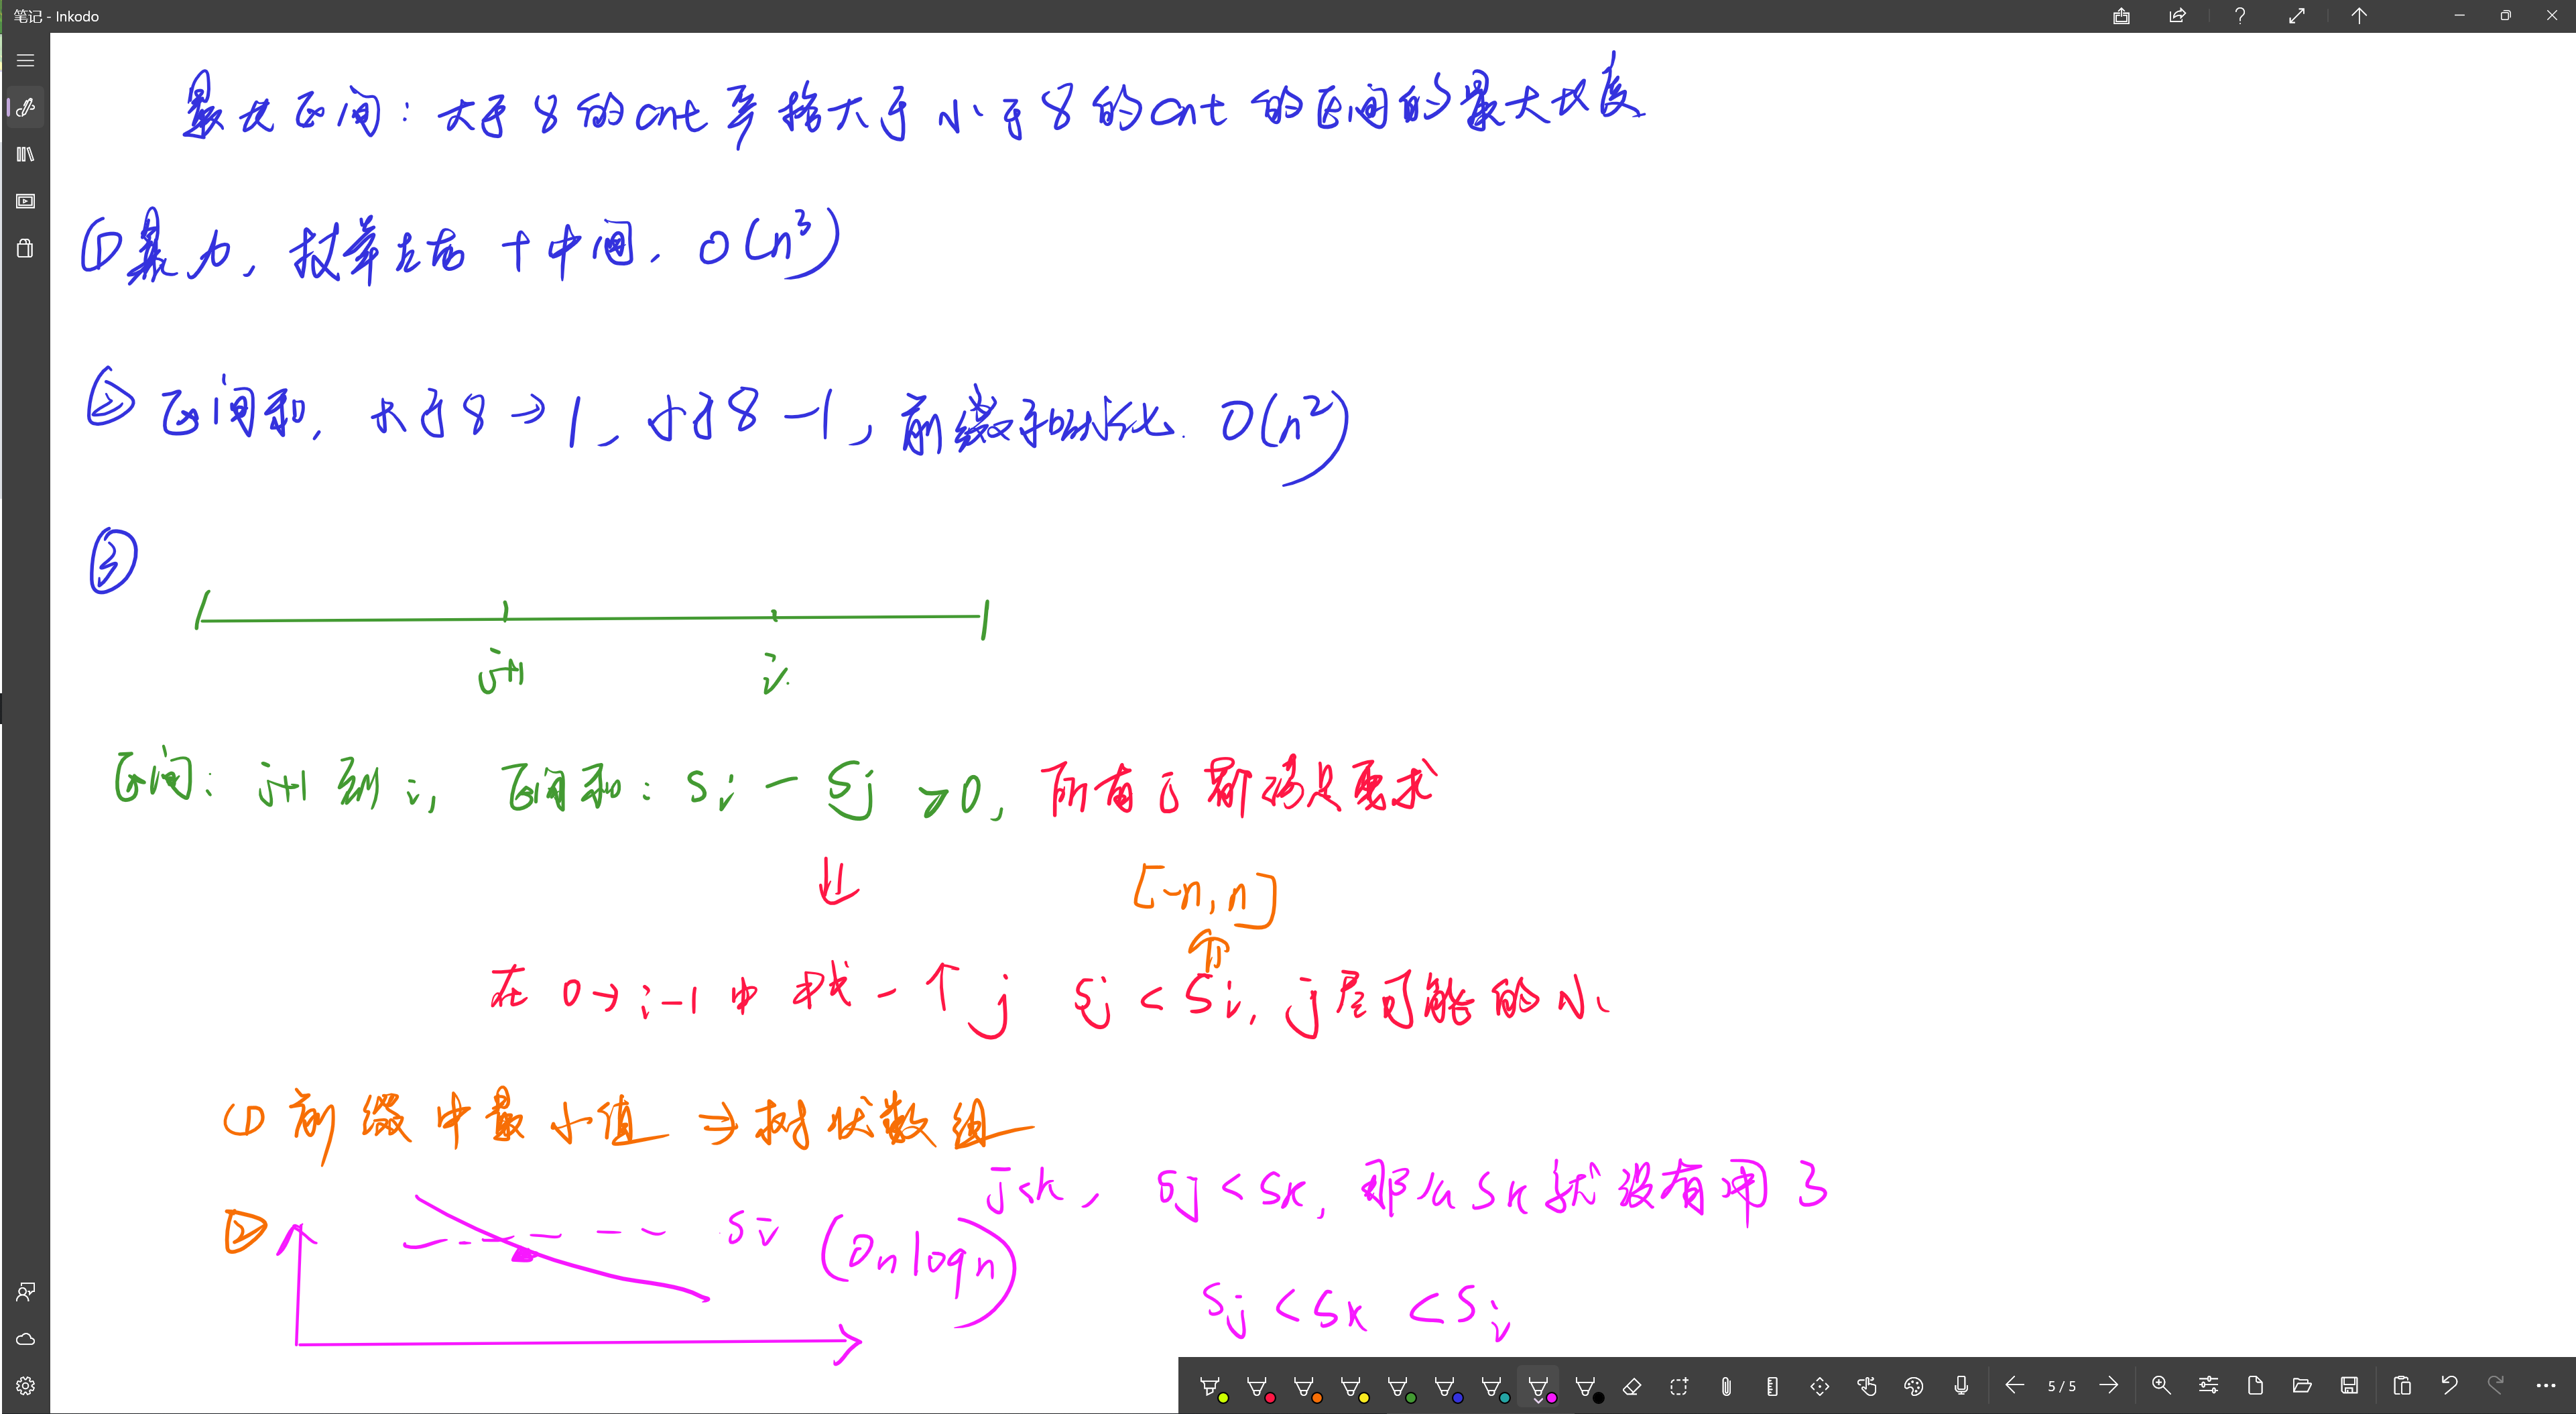 笔记 - Inkodo
最大区间：大于8的cnt严格大于小于8的cnt的区间的最大长度
①暴力，枚举左右+中间. O(n³)
②区间和，大于8→1，小于8 -1，前缀和 O(n²)
③
j+1 i
区间：j+1到i，区间和：Si - Sj >0，所有j都满足要求
⇓ [-n, n]
⇑
在 0→i-1 中找一个j Sj < Si，j尽可能的小
① 前缀中最小值 ⇒ 树状数组
j<k， Sj < Sk，那么Sk就没有用了
② Si (On logn)
Sj < Sk < Si
5 / 5